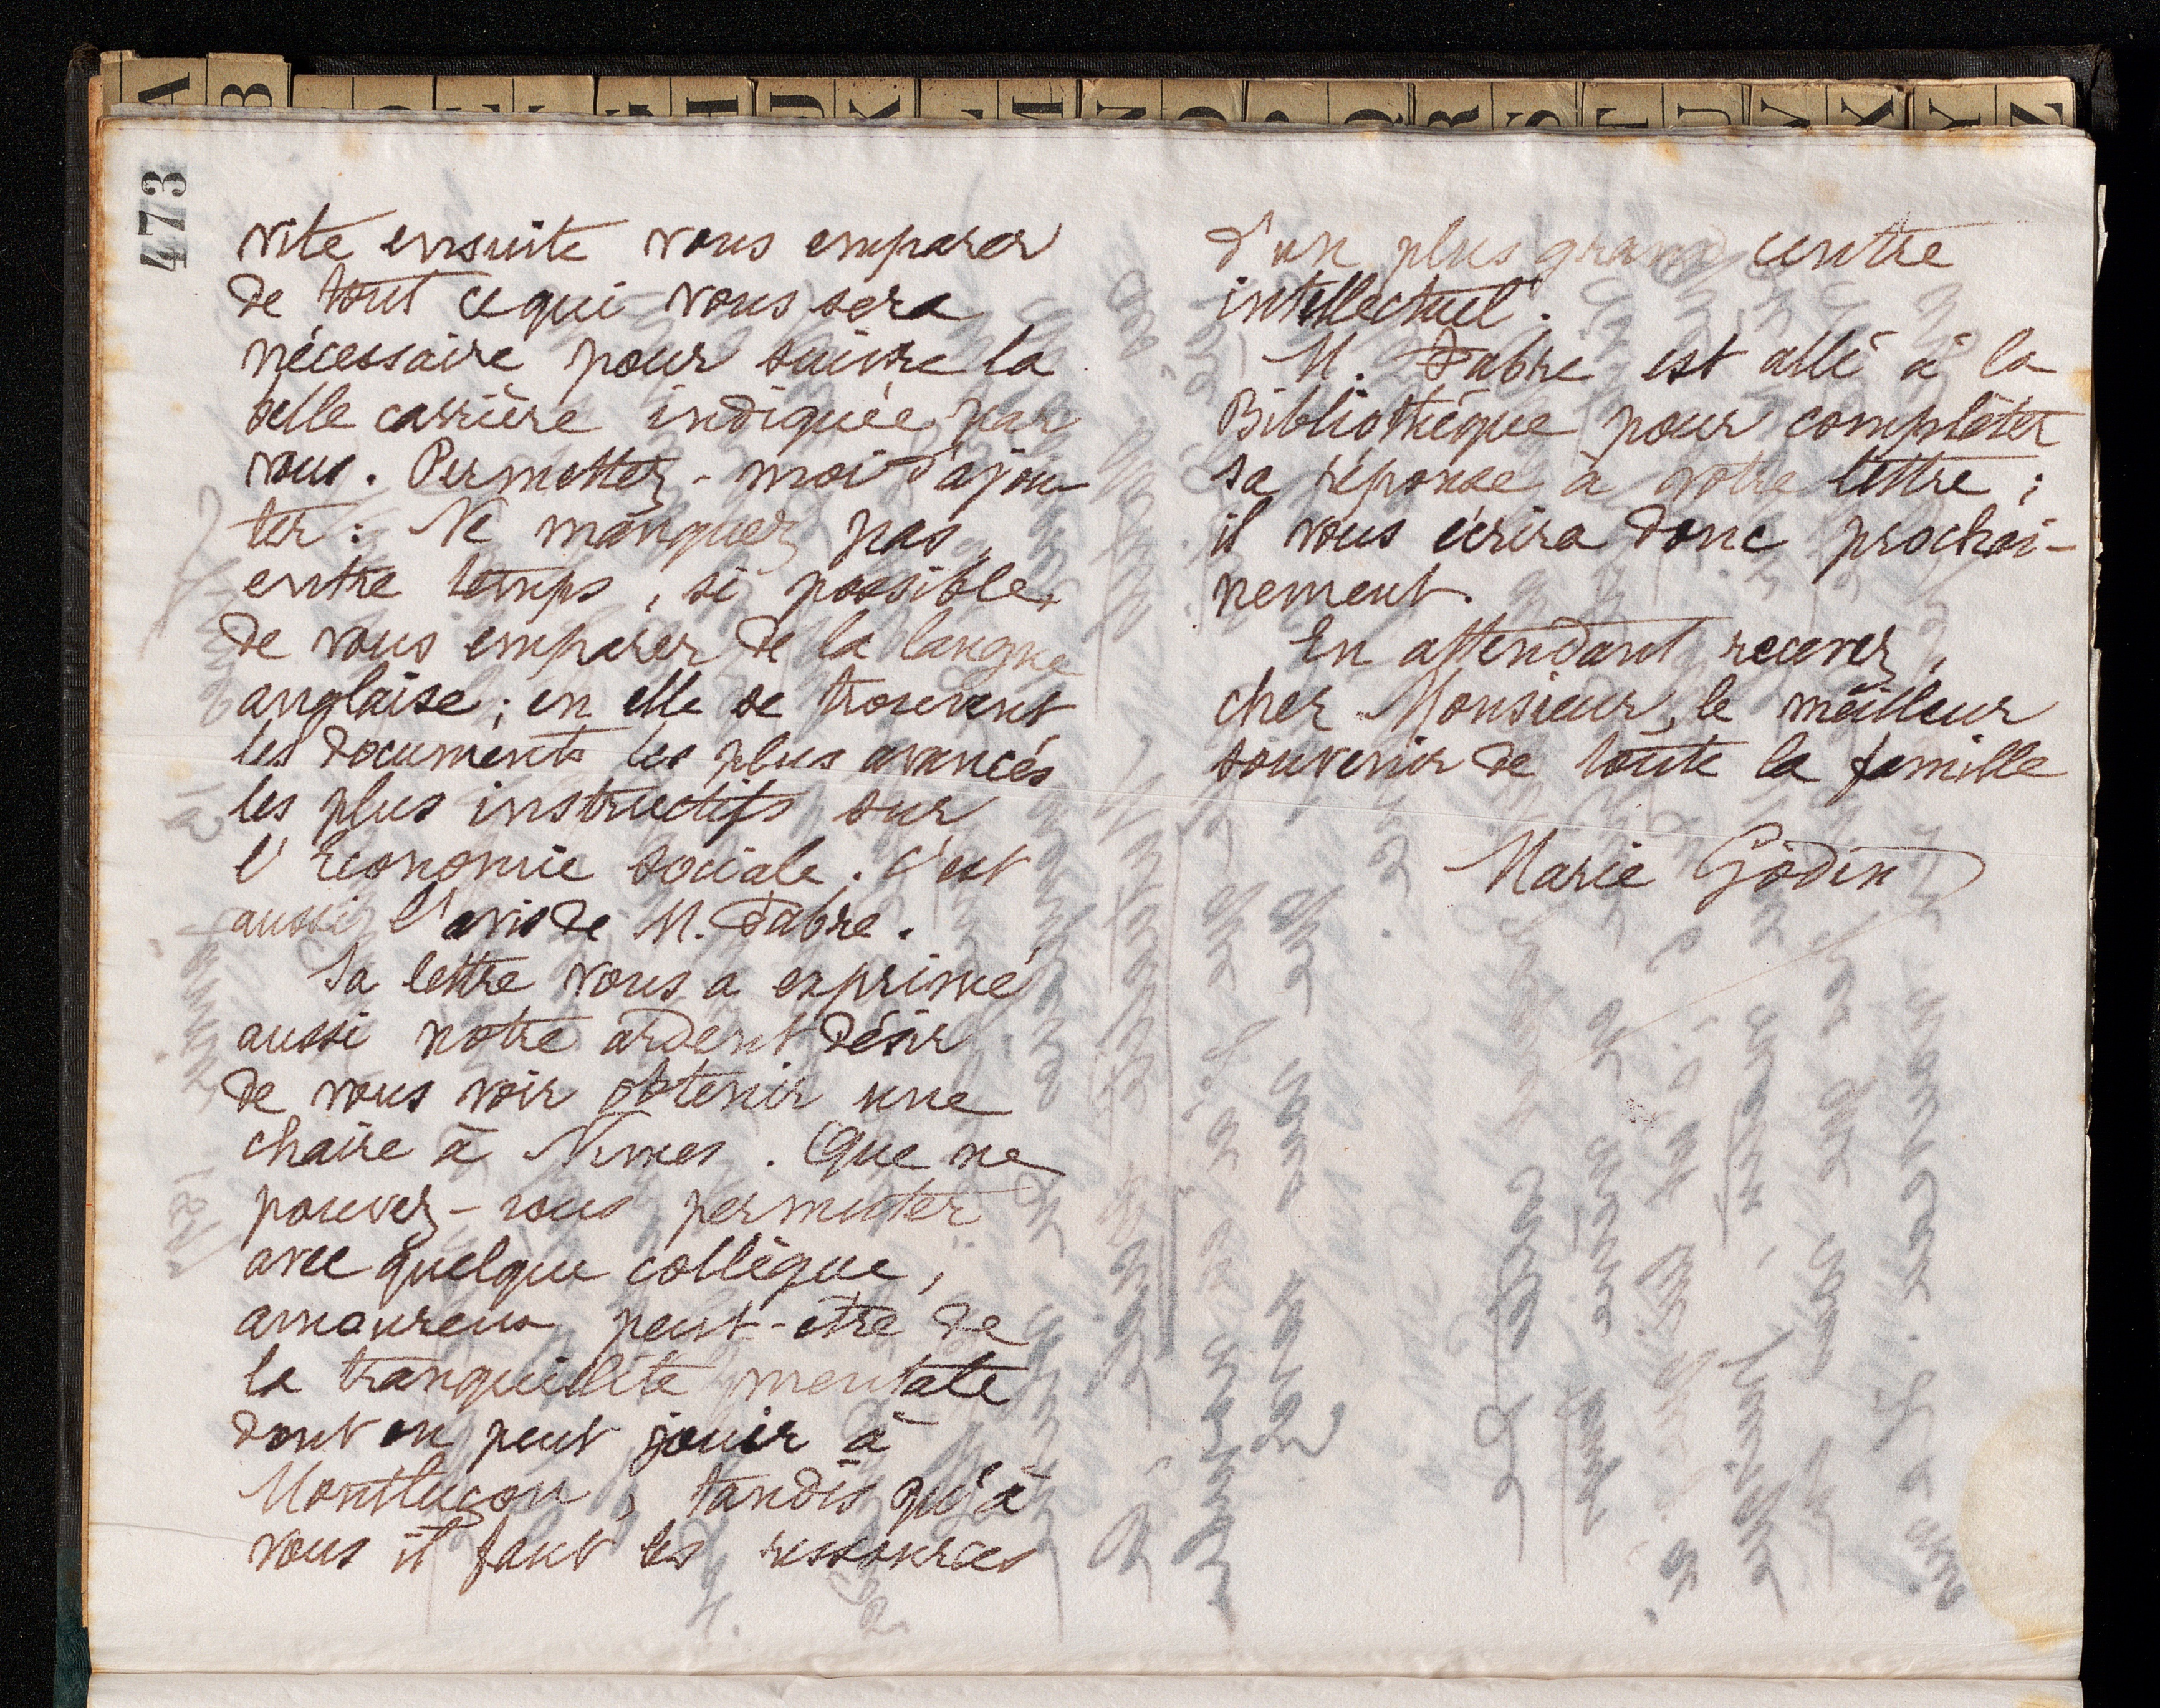 A B K N R S T U V X Y Z
473
vite ensuite vous emparer
de tout ce qui vous sera
nécessaire pour suivre la
belle carrière indiquée par
vous. Permettez-moi d'ajou-
ter : Ne manquez pas,
entre temps, si possible,
de vous emparer de la langue
anglaise ; en elle se trouvent
les documents les plus avancés
les plus instructifs sur
l'Économie sociale. C'est
aussi l'avis de M. Fabre.
Sa lettre vous a exprimé
aussi notre ardent désir
de vous voir obtenir une
chaire à Nimes. Que ne
pouvez-vous permuter
avec quelque collègue,
amoureux peut-être de
la tranquillité mentale
dont on peut jouir à
Montluçon, tandis qu'à
vous il faut les ressources
d'un plus grand centre
intellectuel.
M. Fabre est allé à la
Bibliothèque pour compléter
sa réponse à votre lettre ;
il vous écrira donc prochai-
nement.
En attendant recevez,
cher Monsieur, le meilleur
souvenir de toute la famille
Marie Godin